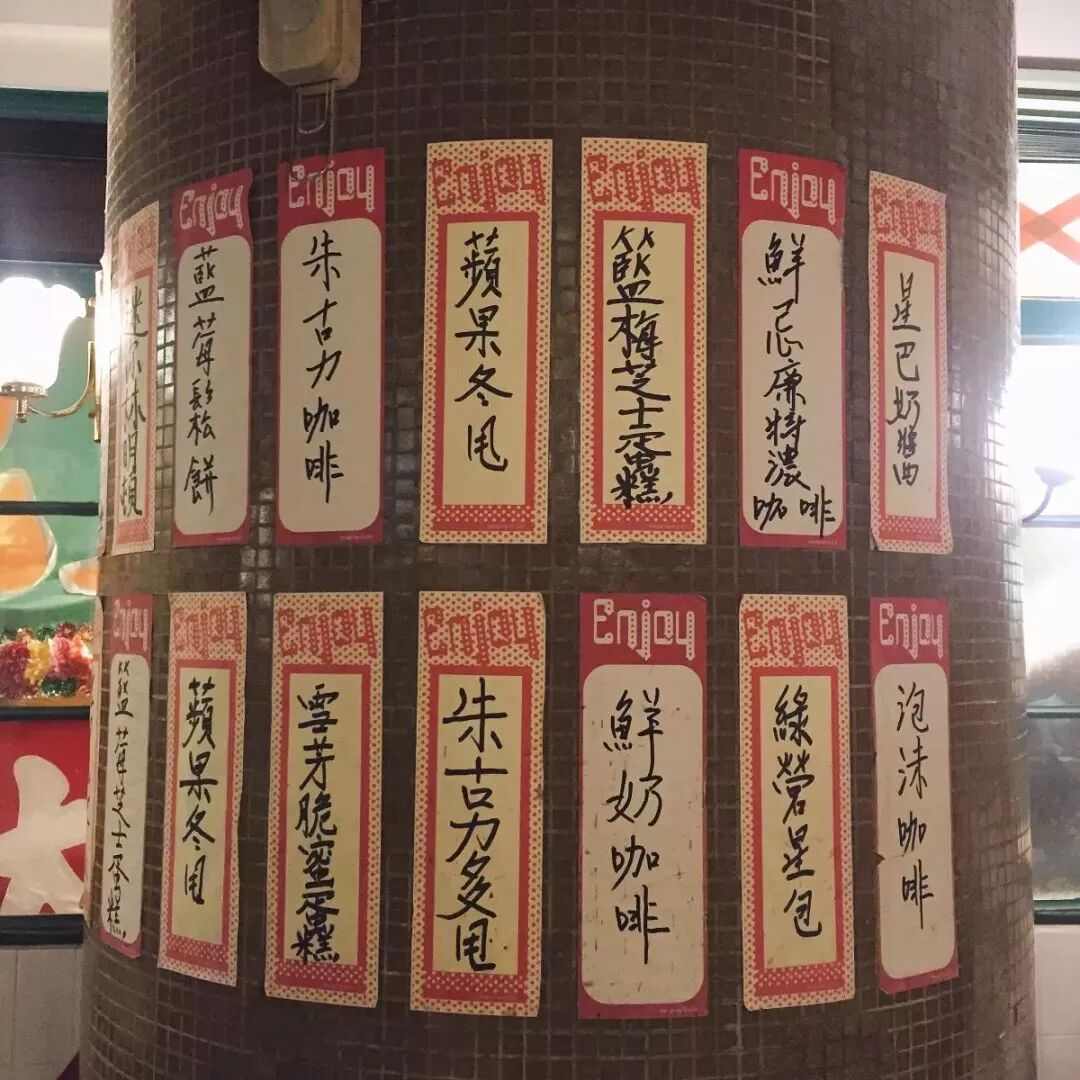 Enjoy
藍莓鬆餅
Enjoy
朱古力咖啡
Enjoy
蘋果冬甩
Enjoy
籃梅芝士蛋糕
Enjoy
鮮忌廉特濃
咖啡
Enjoy
星巴奶醬
Enjoy
籃莓芝士蛋糕
Enjoy
蘋果冬甩
Enjoy
雪芽脆蜜蛋糕
Enjoy
朱古力多甩
Enjoy
鮮奶咖啡
Enjoy
綠營星包
Enjoy
泡沫咖啡